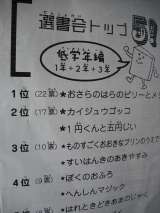 選書会トップ5!
低学年編
1年+2年+3年
1位 (22票) ★おさらのはらのピリーとメ
2位 (17票) ★カイジュウゴッコ
★1円くんと五円じい
3位 (10票) ★ものすごくおおきなプリンのうえで
★すいはんきのあきやすみ
4位 (9票) ★ぼくのおふろ
★へんしんマジック
★はれときどきあまのじゃく